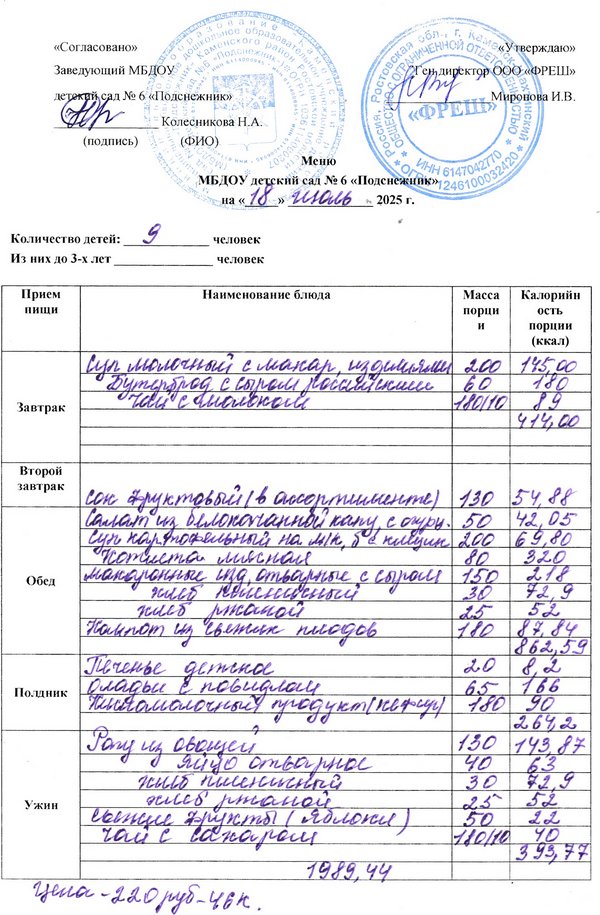 «Согласовано» «Утверждаю»
Заведующий МБДОУ Ген.директор ООО «ФРЕШ»
детский сад № 6 «Подснежник»
Миронова И.В.
Колесникова Н.А.
(подпись) (ФИО)
«ФРЕШ»
ИНН 6147042770
ОГРН 1246100032420
Меню
МБДОУ детский сад № 6 «Подснежник»
на « 18 » июль 2025 г.
Количество детей: 9 человек
Из них до 3-х лет человек
Прием пищи Наименование блюда Масса порции Калорийность порции (ккал)
Завтрак
Суп молочный с макар, изделиями 200 175,00
Бутерброд с сыром российским 60 180
Чай с молоком 180/10 89
414,00
Второй завтрак
Сок фруктовый (в ассортименте) 130 54,88
Обед
Салат из белокочанной капу, с огур. 50 42,05
Суп картофельный на м/к, б с клёцк 200 69,80
Котлета мясная 80 320
Макаронные изд, отварные с сыром 150 218
хлеб пшеничный 30 72,9
хлеб ржаной 25 52
Компот из свежих плодов 180 87,84
862,59
Полдник
Печенье детское 20 8,2
Оладьи с повидлом 65 166
Кисломолочный продукт (кефир) 180 90
264,2
Ужин
Рагу из овощей 130 143,87
Яйцо отварное 40 63
хлеб пшеничный 30 72,9
хлеб ржаной 25 52
свежие фрукты (яблоки) 50 22
чай с сахаром 180/10 40
393,77
1989,44
Цена - 220 руб - 46 к.